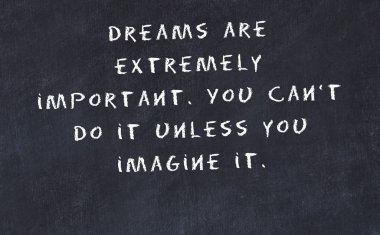 DREAMS ARE
EXTREMELY
IMPORTANT. YOU CAN'T
DO IT UNLESS YOU
IMAGINE IT.